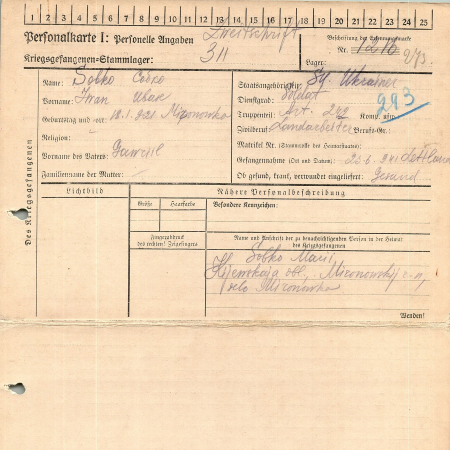 1 2 3 4 5 6 7 8 9 10 11 12 13 14 15 16 17 18 19 20 21 22 23 24 25
Personalkarte I: Personelle Angaben
Zweitschrift
Kriegsgefangenen-Stammlager: 311
Beschriftung der Erkennungsmarke
Nr.
Lager:
Des Kriegsgefangenen
Name: Sobko Собко
Vorname: Iwan Иван
Geburtstag und -ort: Mironowka
Religion:
Vorname des Vaters:
Familienname der Mutter:
Staatsangehörigkeit: Ukrainer
Dienstgrad: Soldat
Truppenteil: Art. Komp. usw.:
293
Zivilberuf: Landarbeiter Berufs-Gr.:
Matrikel Nr. (Stammrolle des Heimatstaates):
Gefangennahme (Ort und Datum): Lettland
Ob gesund, krank, verwundet eingeliefert: Gesund
Lichtbild
Nähere Personalbeschreibung
Größe
Haarfarbe
Besondere Kennzeichen:
Fingerabdruck
des rechten! Zeigefingers
Name und Anschrift der zu benachrichtigenden Person in der Heimat
des Kriegsgefangenen
Sobko
Kiewskaja obl., Mironowskij r-n,
selo Mironowka
Wenden!